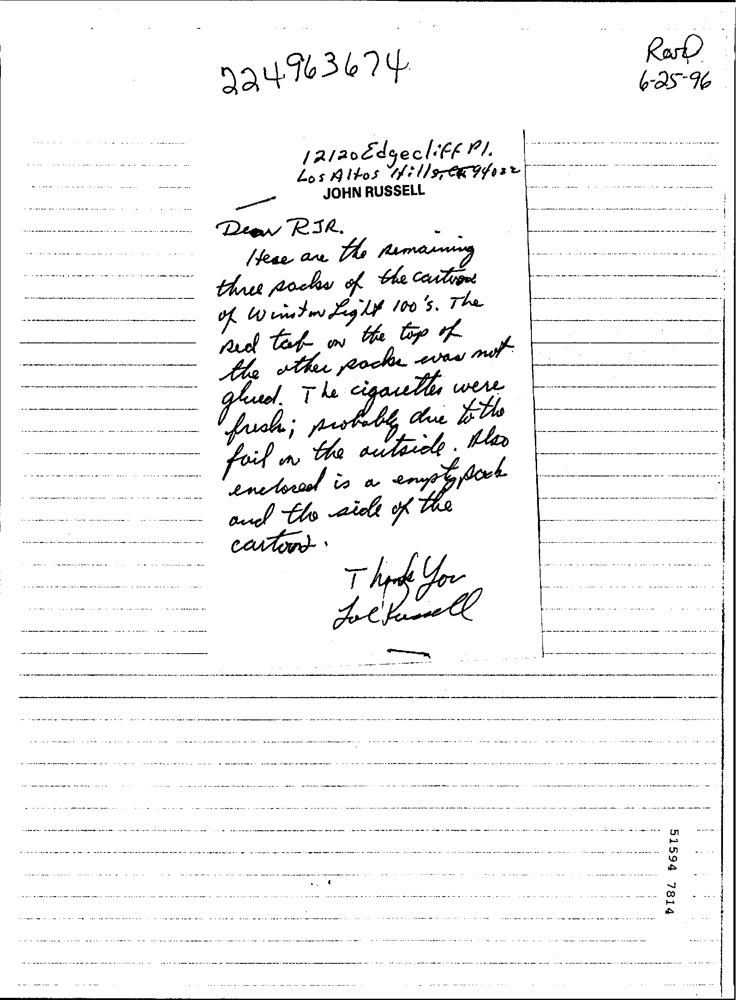 224963674
Rec'd
6-25-96
12120 Edgecliff Pl.
Los Altos Hills, CA 94022
JOHN RUSSELL
Dear RJR.
Here are the remaining
three packs of the cartoon
of Winston Light 100's. The
red tab on the top of
the other packs was not
glued. The cigarettes were
fresh; probably due to the
foil on the outside. Also
enclosed is a empty pack
and the side of the
cartoon.
Thank You
Russell
51594 7814